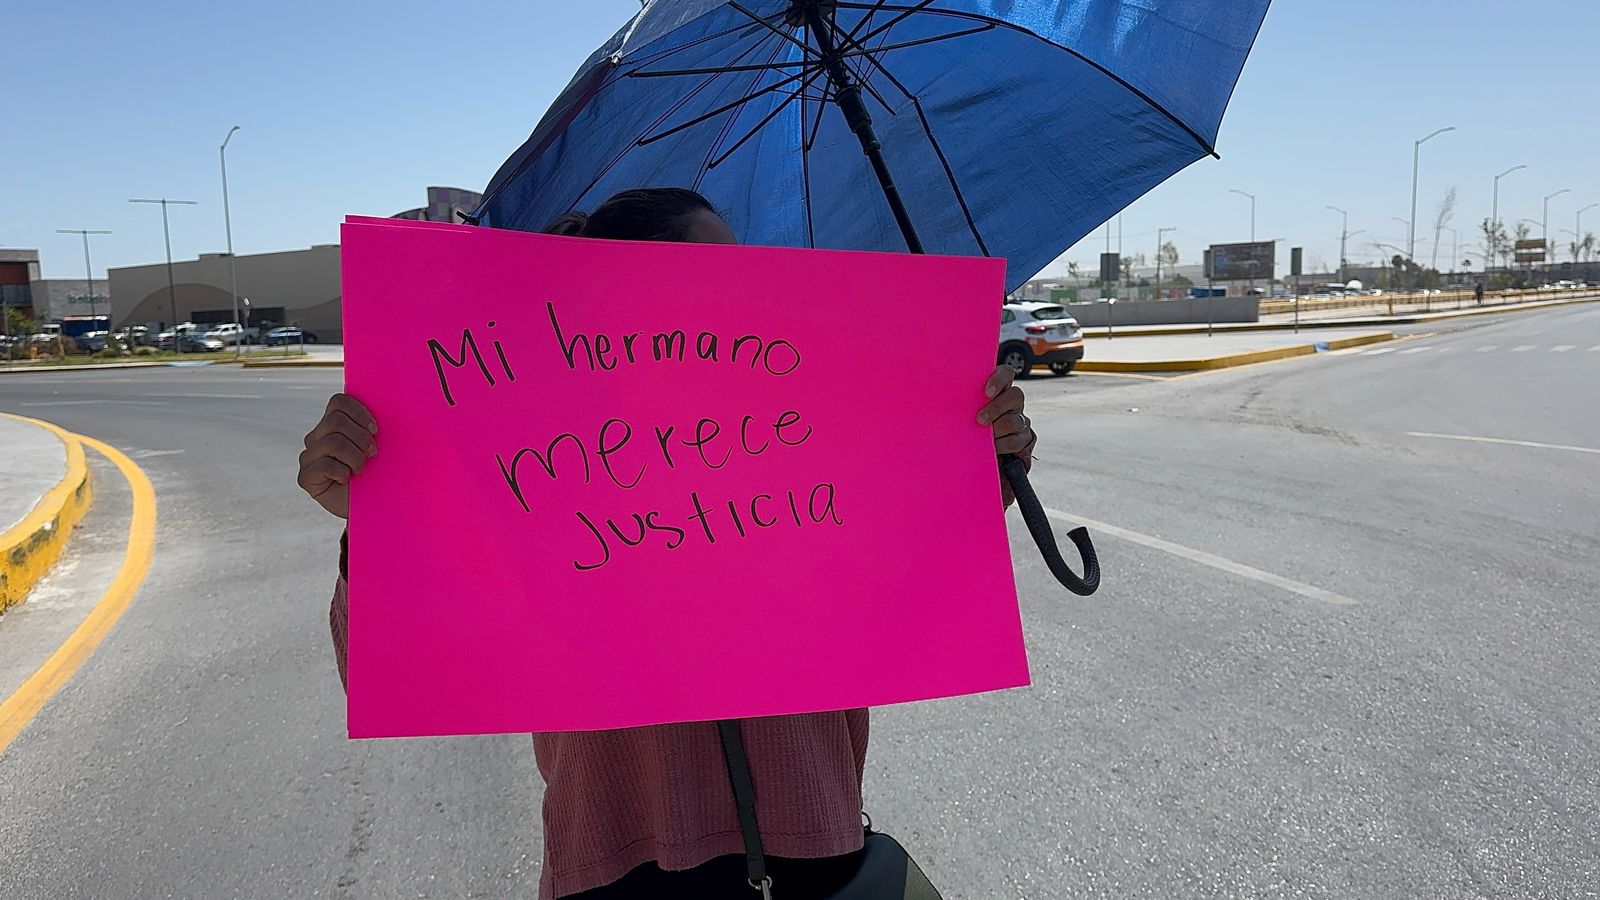 Mi hermano
merece
Justicia